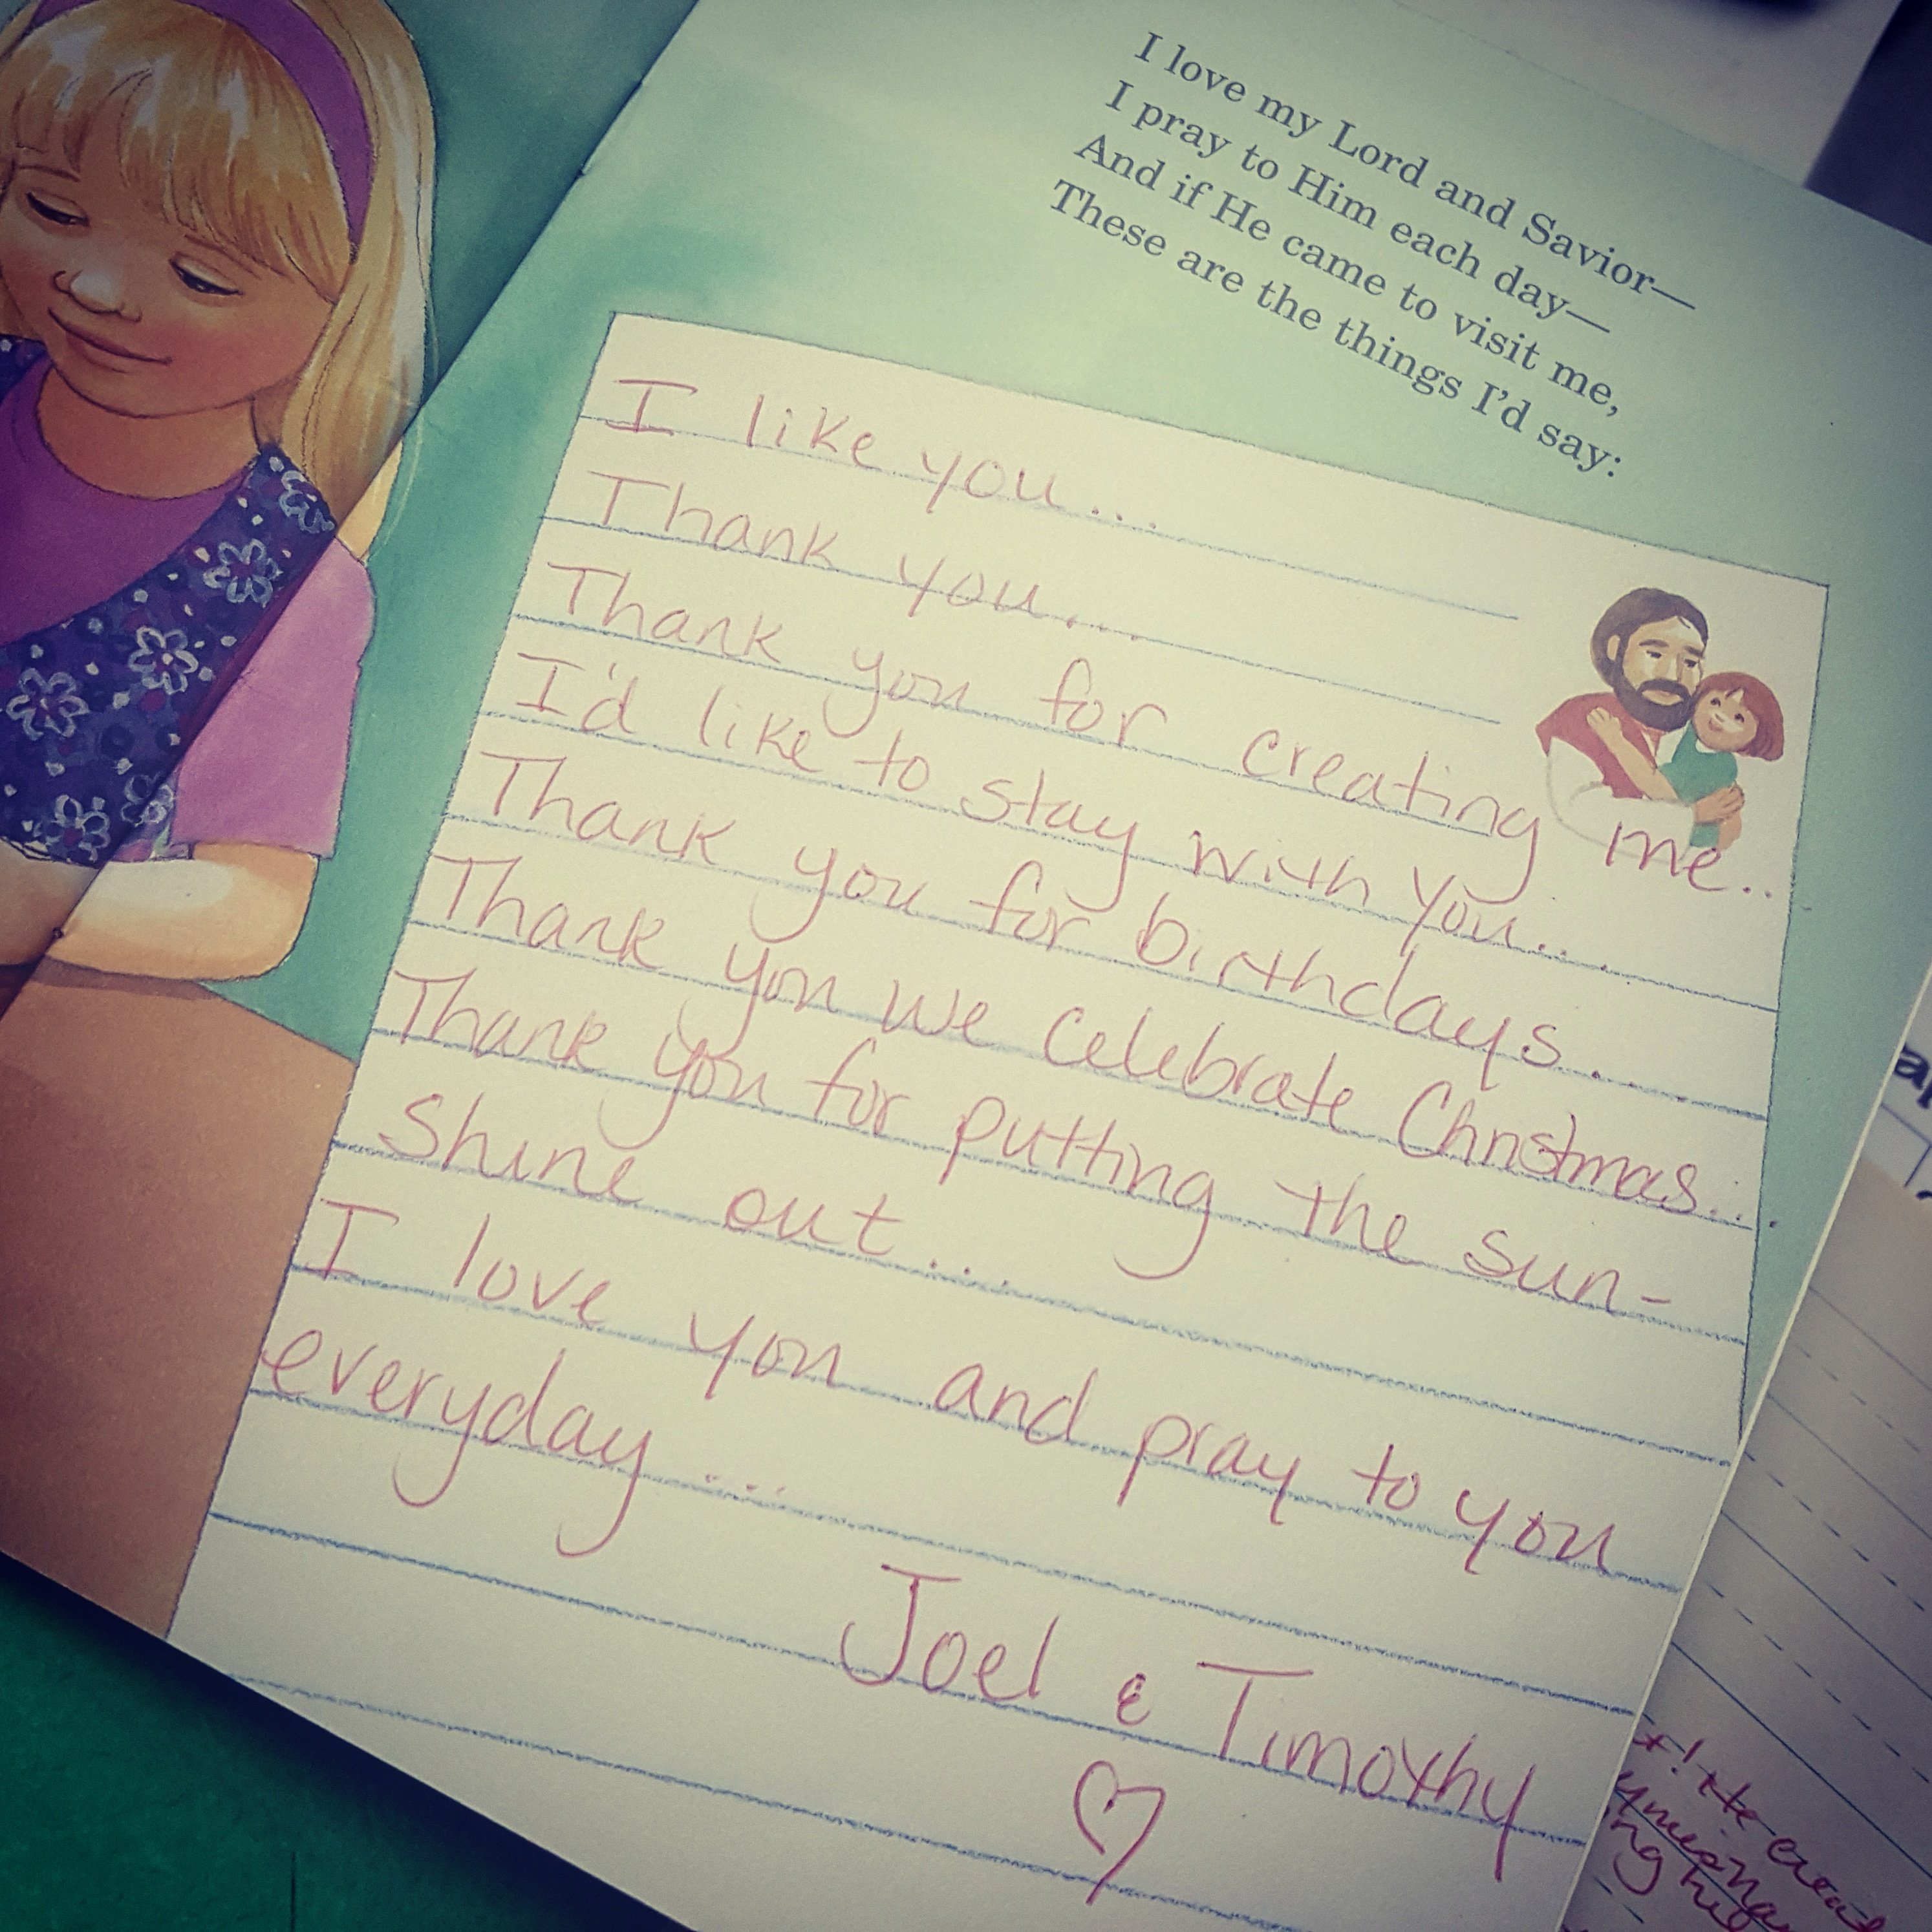 I love my Lord and Savior—
I pray to Him each day—
And if He came to visit me,
These are the things I'd say:
I like you...
Thank you....
Thank you for creating me..
I'd like to stay with you...
Thank you for birthdays...
Thank you we celebrate Christmas...
Thank you for putting the sun-
shine out....
I love you and pray to you
everyday...
Joel & Timothy
! He